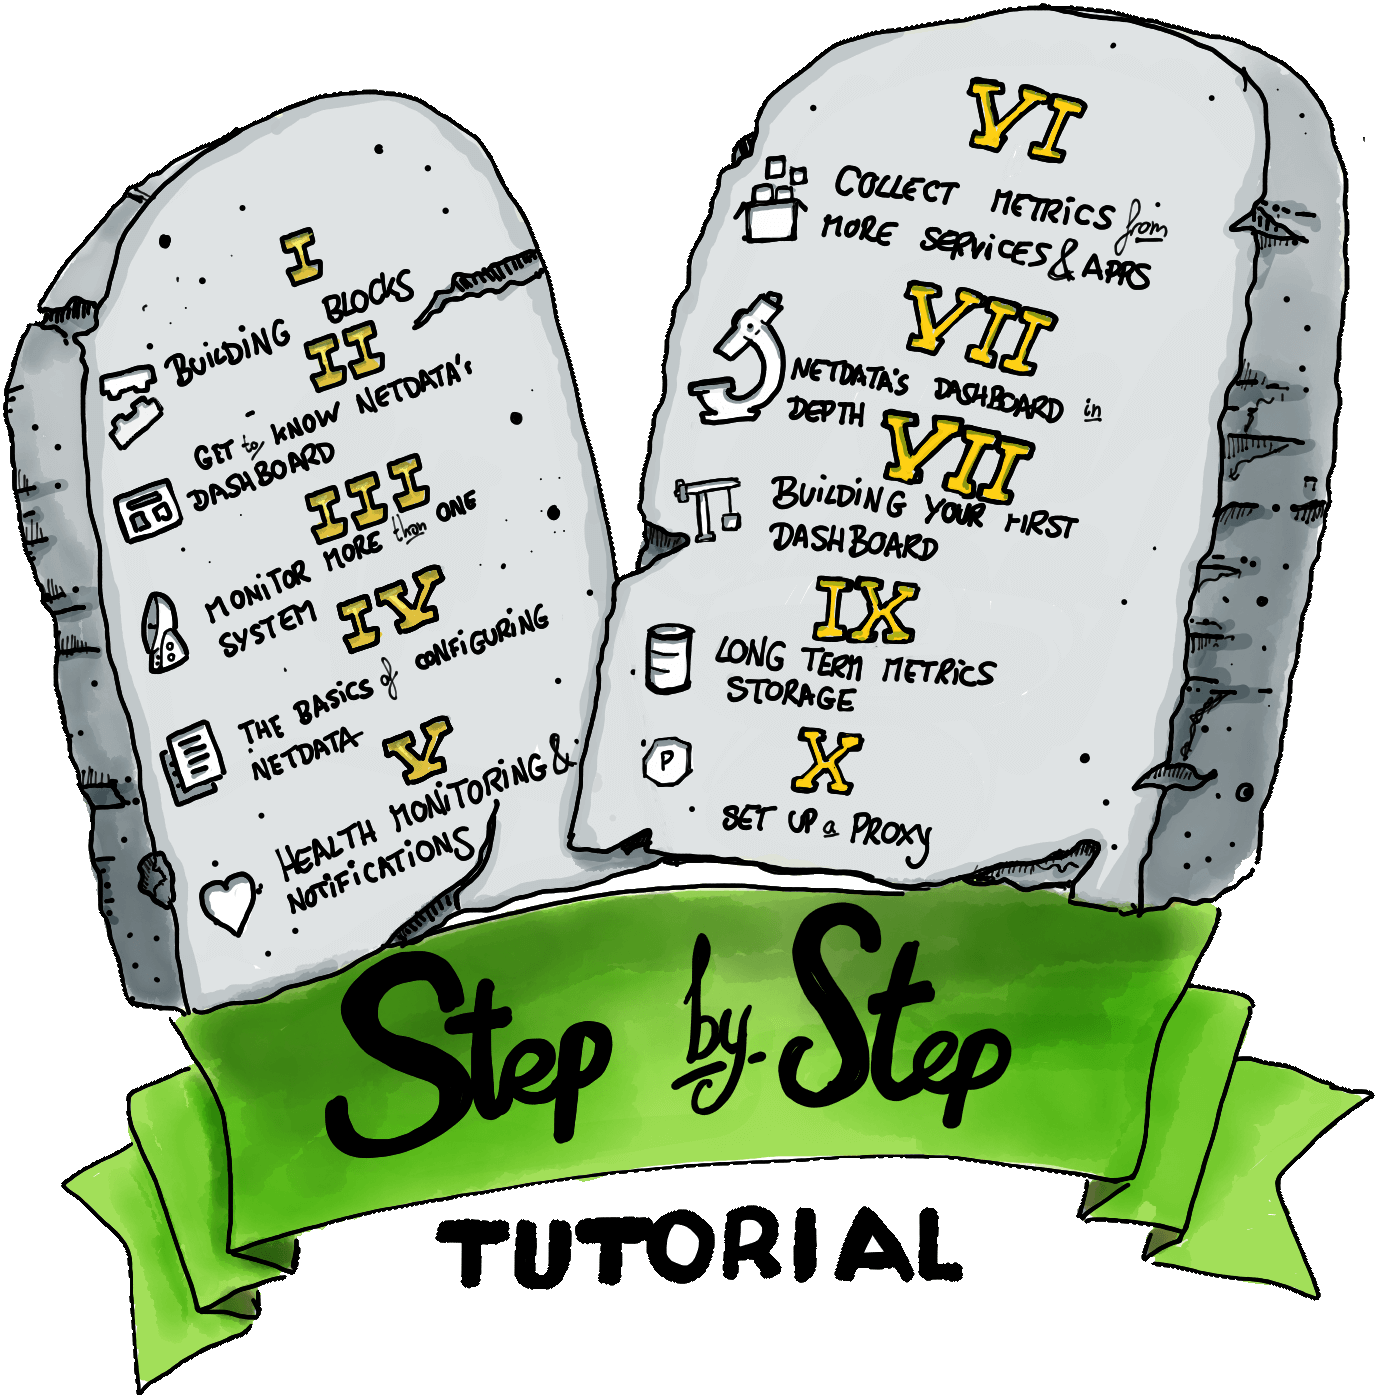 I
BUILDING BLOCKS
II
GET to KNOW NETDATA's
DASHBOARD
III
MONITOR MORE than ONE
SYSTEM
IV
THE BASICS of CONFIGURING
NETDATA
V
HEALTH MONITORING &
NOTIFICATIONS
VI
COLLECT METRICS from
MORE SERVICES & APPS
VII
NETDATA'S DASHBOARD in
DEPTH
VII
BUILDING YOUR FIRST
DASHBOARD
IX
LONG TERM METRICS
STORAGE
P
X
SET UP a PROXY
Step by Step
TUTORIAL